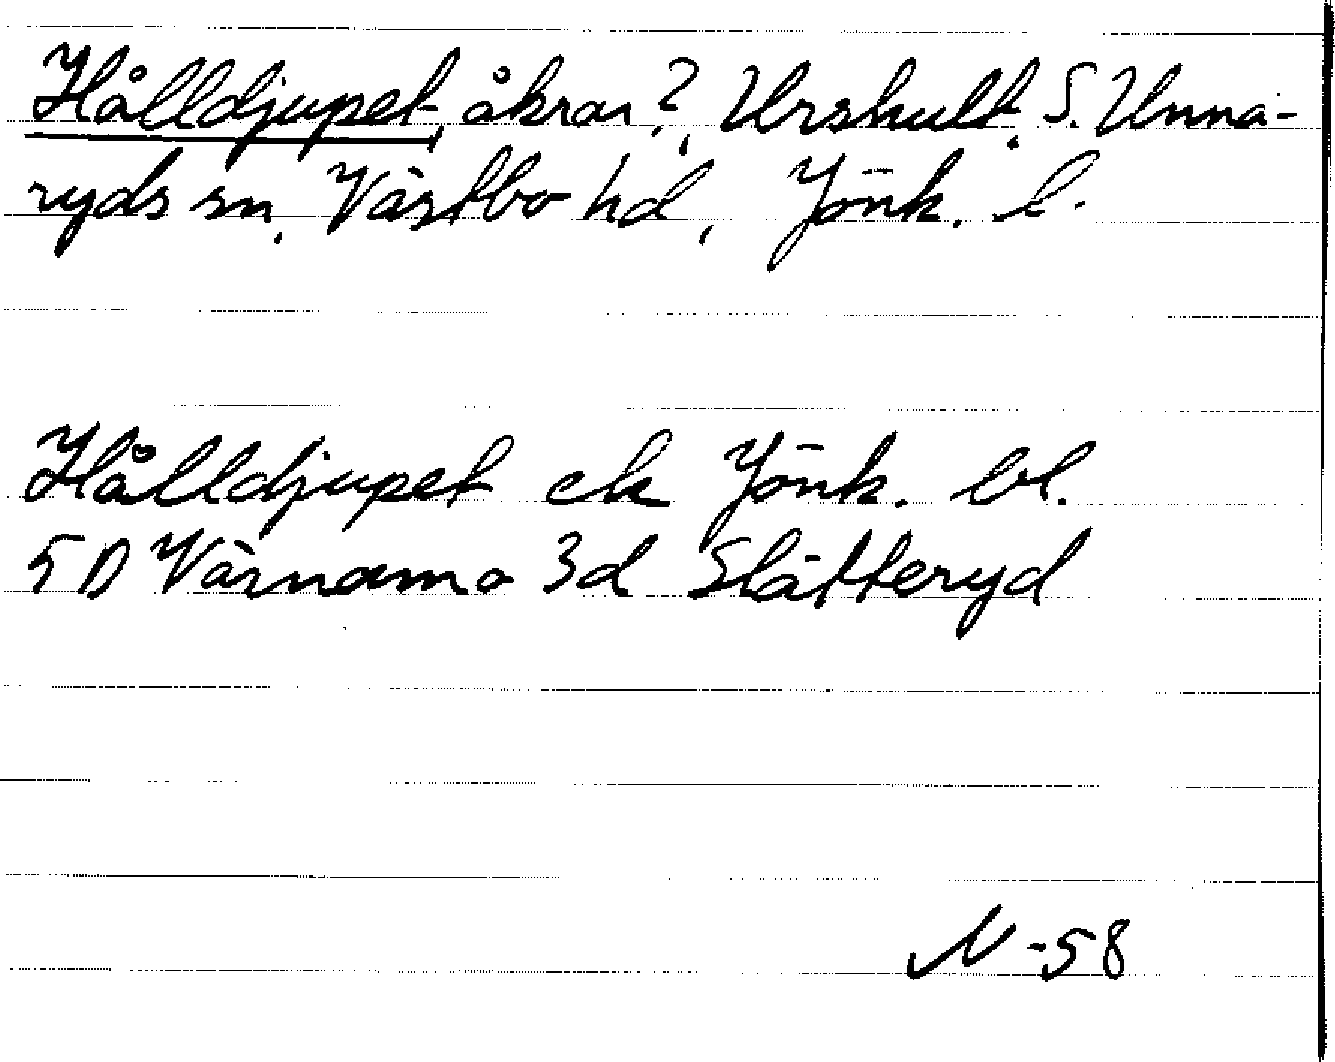 Hålldjupet, åkrar?, Urshult, S. Unna-
ryds sn, Västbo hd, Jönk. l.
Hålldjupet ek Jönk. bl.
5D Värnamo 3d Slätteryd
N -58